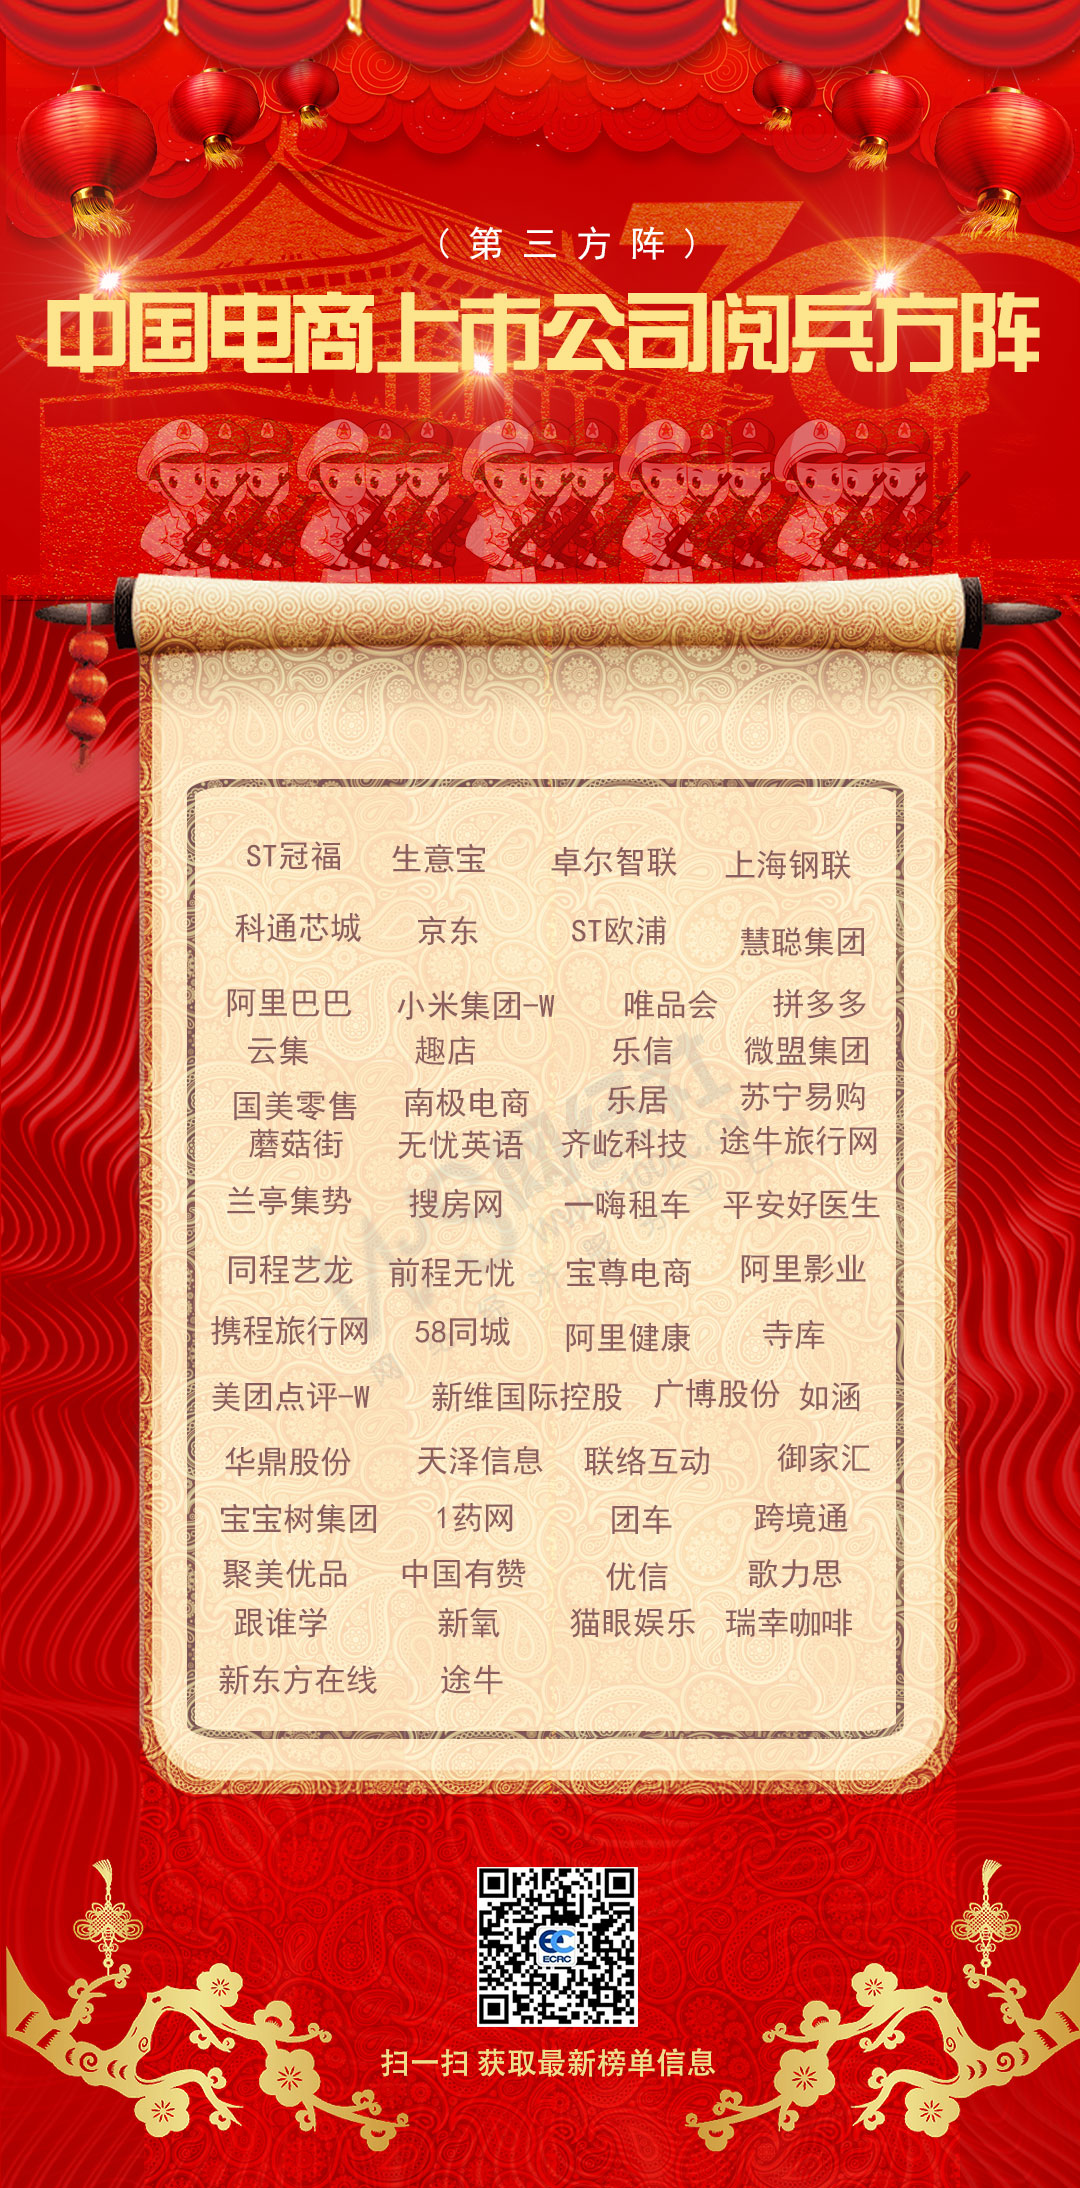 （第三方阵）
中国电商上市公司阅兵方阵
ST冠福 生意宝 卓尔智联 上海钢联
科通芯城 京东 ST欧浦 慧聪集团
阿里巴巴 小米集团-W 唯品会 拼多多
云集 趣店 乐信 微盟集团
国美零售 南极电商 乐居 苏宁易购
蘑菇街 无忧英语 齐屹科技 途牛旅行网
兰亭集势 搜房网 一嗨租车 平安好医生
同程艺龙 前程无忧 宝尊电商 阿里影业
携程旅行网 58同城 阿里健康 寺库
美团点评-W 新维国际控股 广博股份 如涵
华鼎股份 天泽信息 联络互动 御家汇
宝宝树集团 1药网 团车 跨境通
聚美优品 中国有赞 优信 歌力思
跟谁学 新氧 猫眼娱乐 瑞幸咖啡
新东方在线 途牛
ECRC
扫一扫 获取最新榜单信息